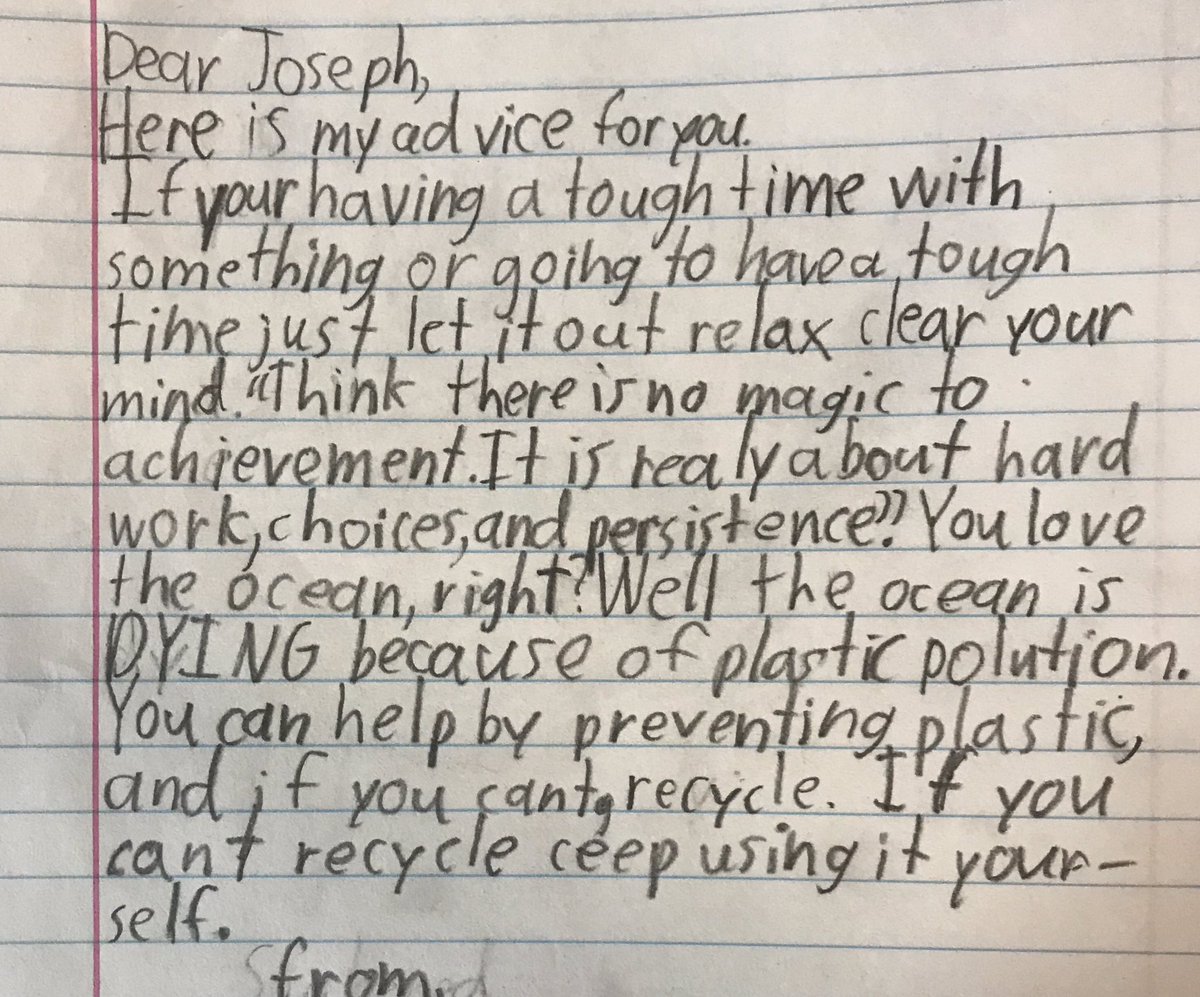 Dear Joseph,
Here is my advice for you.
If your having a tough time with
something or going to have a tough
time just let it out relax clear your
mind. "Think there is no magic to
achievement. It is realy about hard
work, choices, and persistence". You love
the ocean, right? Well the ocean is
DYING because of plastic polution.
You can help by preventing plastic,
and if you cant, recycle. If you
cant recycle ceep using it your-
self.
from,